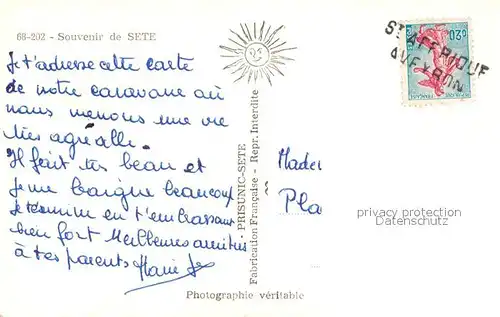 68-202 - Souvenir de SETE
Je t'adresse cette carte
de notre caravane où
nous menons une vie
très agréable.
Il fait très beau et
je me baigne beaucoup
Je termine en t'embrassant
bien fort Meilleures amitiés
à tes parents Marie
PRISUNIC-SETE
Fabrication Française - Repr. Interdite
Photographie véritable
ST AFFRIQUE
AVEYRON
0,20
Made
Pla
privacy protection
Datenschutz